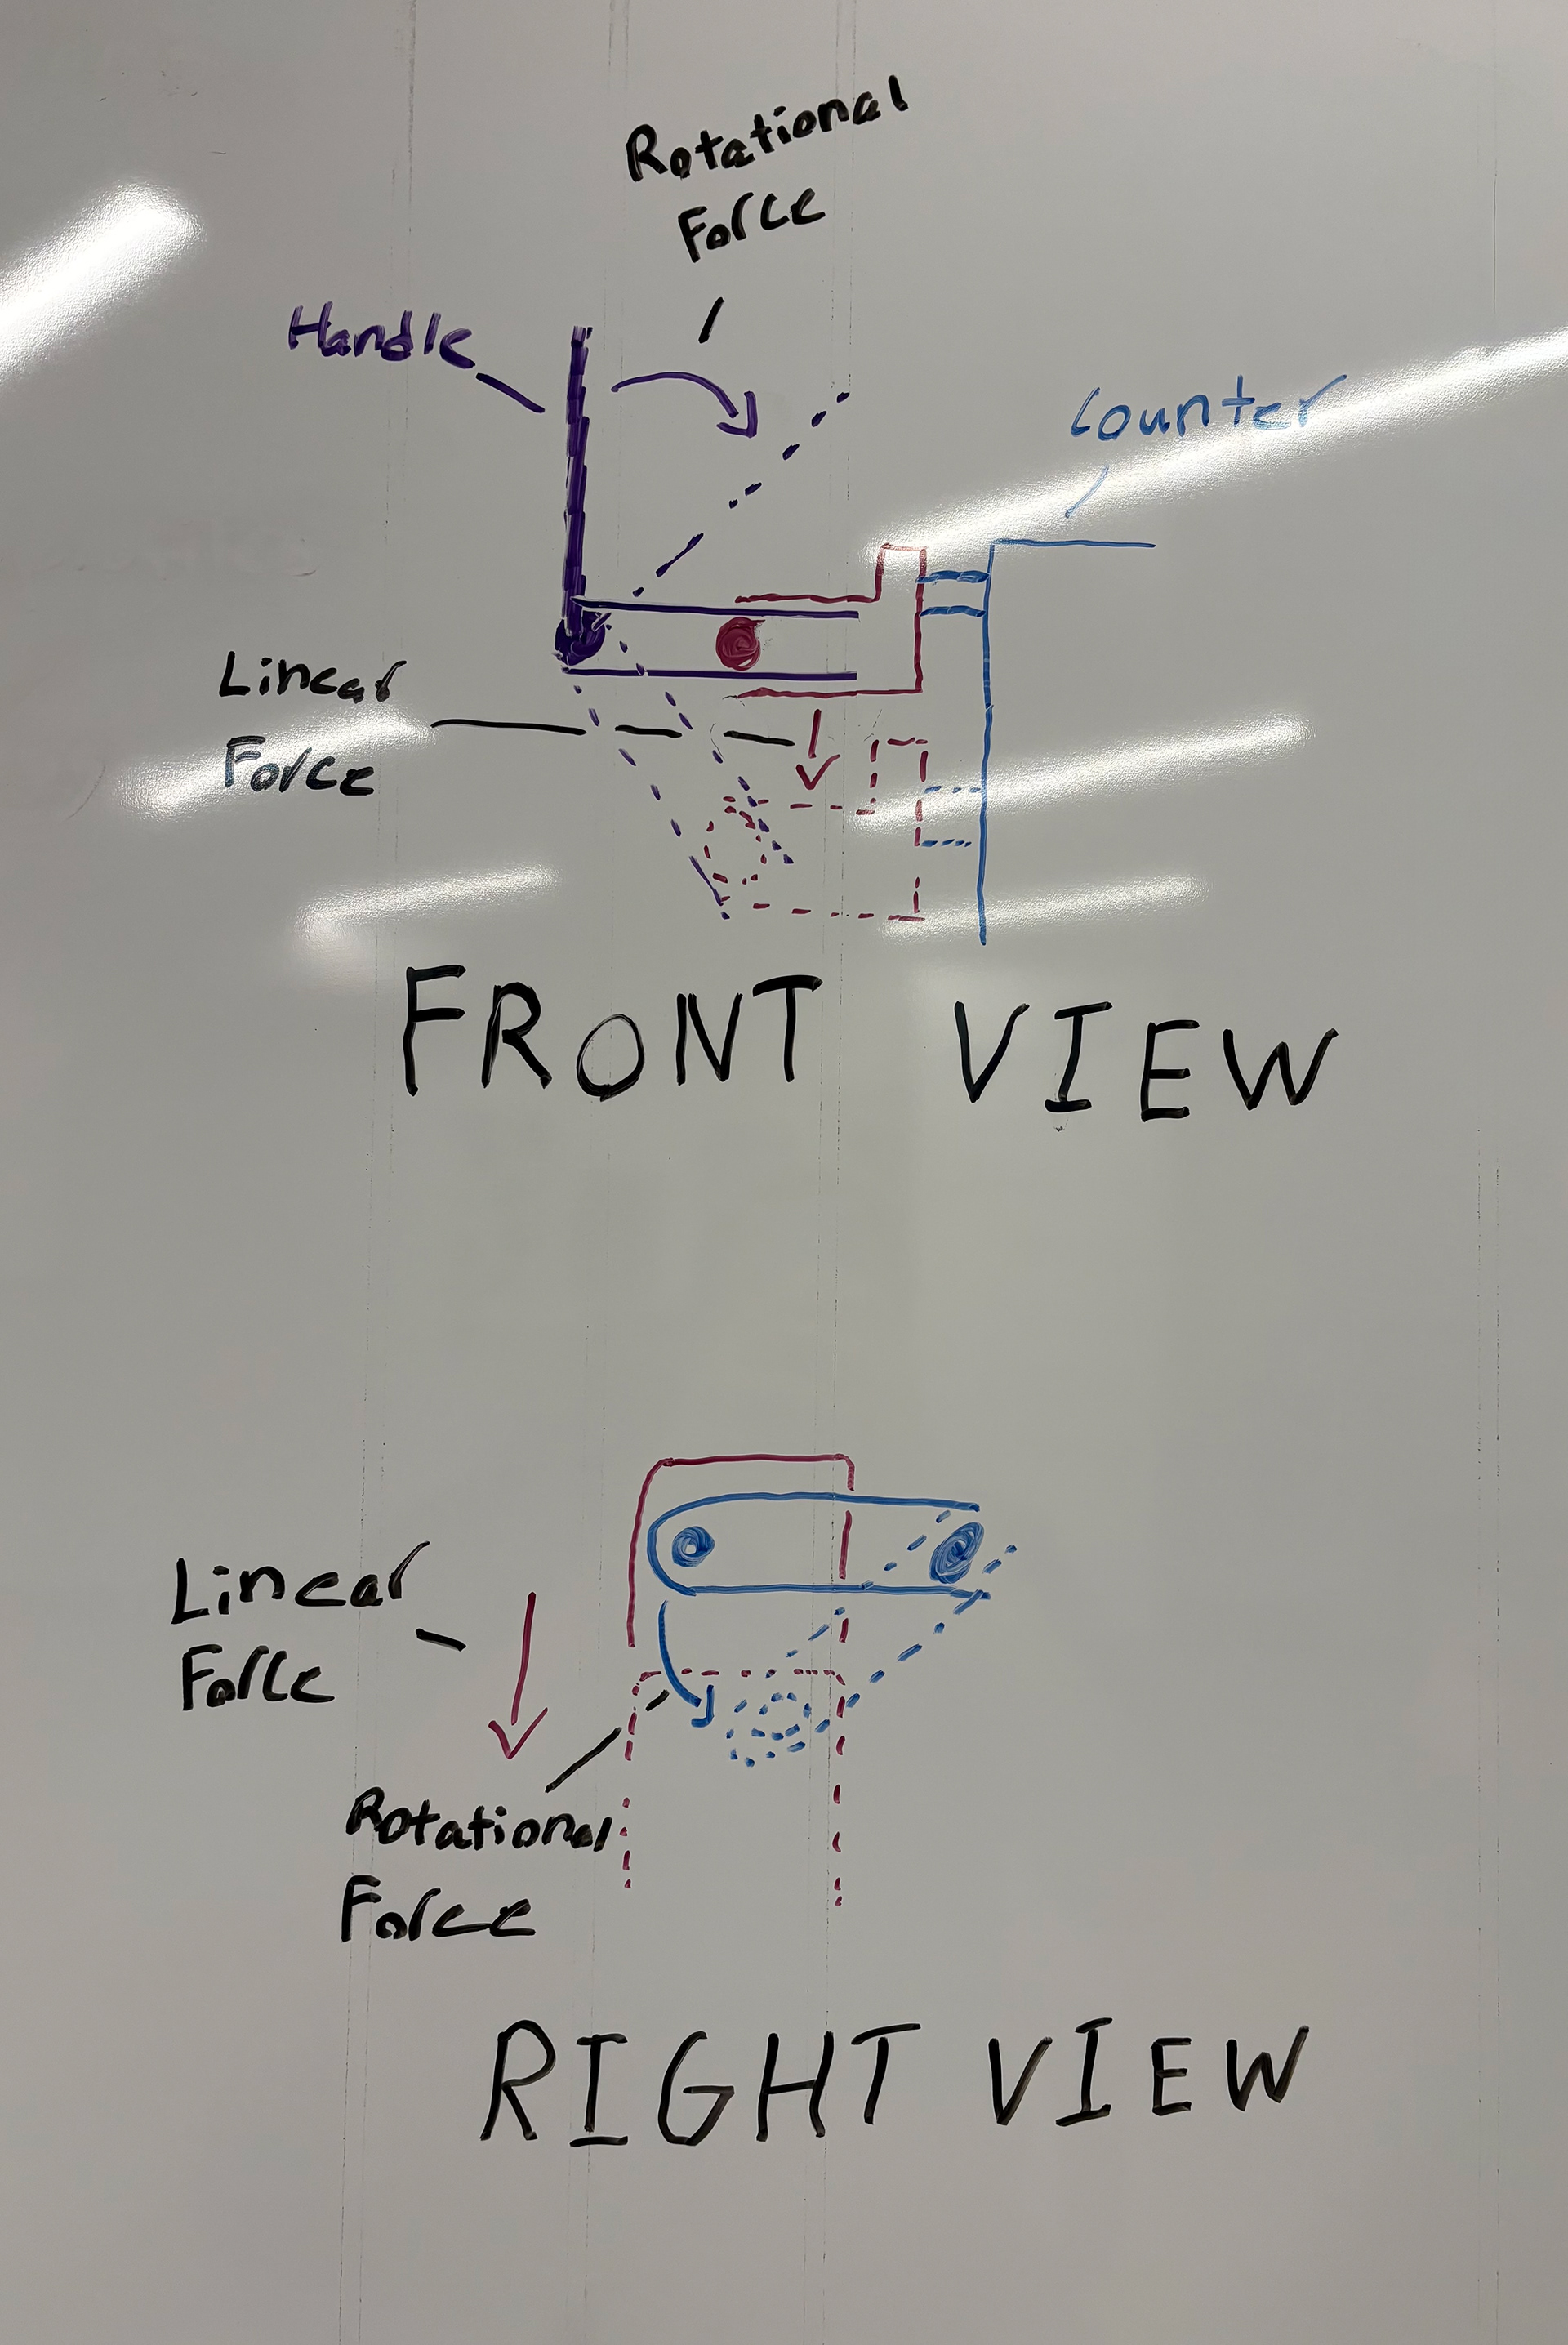 Rotational
Force
Handle
Counter
Linear
Force
FRONT VIEW
Linear
Force
Rotational
Force
RIGHT VIEW